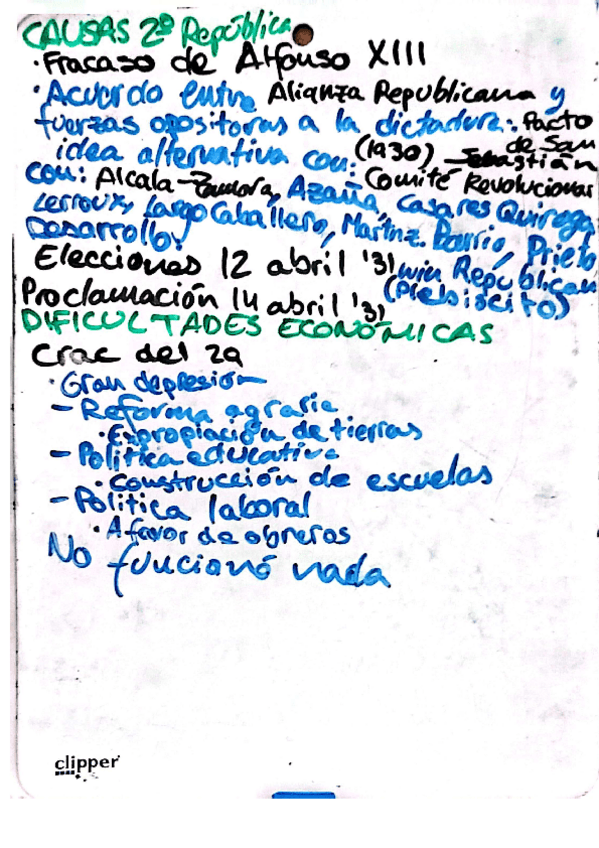 CAUSAS 2º República
· Fracaso de Alfonso XIII
· Acuerdo entre Alianza Republicana y
fuerzas opositoras a la dictadura: Pacto
de San
idea alternativa con: (1930), Sebastián
con: Alcala-Zamora, Azaña, Comité Revolucionar
Lerroux, Largo Caballero, Casares Quiroga,
Desarrollo: Martnz. Barrio, Prieto
Elecciones 12 abril '31 win Republican
(Plebiscito)
Proclamación 14 abril '31
DIFICULTADES ECONÓMICAS
Crac del 29
· Gran depresión
- Reforma agraria
· Expropiación de tierras
- Política educativa
· Construcción de escuelas
- Política laboral
· A favor de obreros
No funcionó nada
clipper